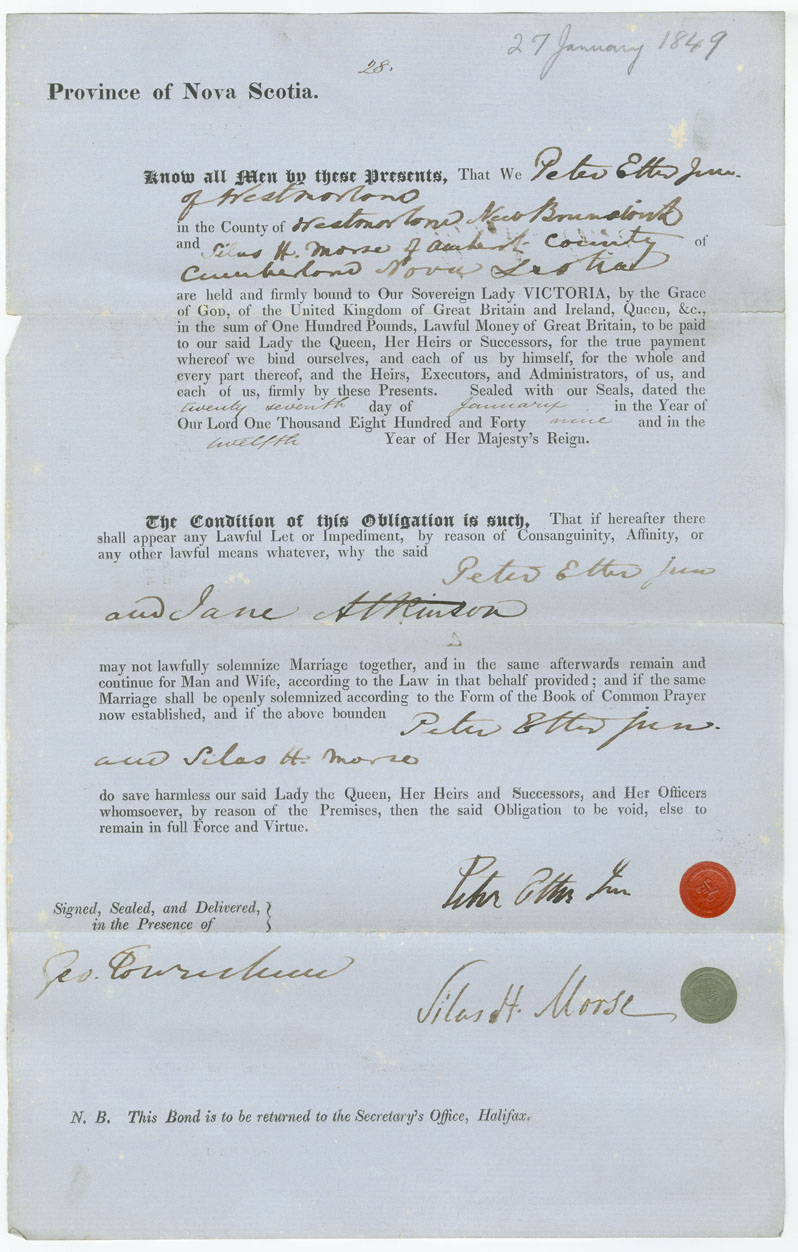 27 January 1849
28.
Province of Nova Scotia.
Know all Men by these Presents, That We Peter Etter Jun.
of Westmorland
in the County of Westmorland New Brunswick
and Silas H. Morse of Amherst County of
Cumberland Nova Scotia
are held and firmly bound to Our Sovereign Lady VICTORIA, by the Grace
of GOD, of the United Kingdom of Great Britain and Ireland, Queen, &c.,
in the sum of One Hundred Pounds, Lawful Money of Great Britain, to be paid
to our said Lady the Queen, Her Heirs or Successors, for the true payment
whereof we bind ourselves, and each of us by himself, for the whole and
every part thereof, and the Heirs, Executors, and Administrators, of us, and
each of us, firmly by these Presents. Sealed with our Seals, dated the
twenty seventh day of January in the Year of
Our Lord One Thousand Eight Hundred and Forty nine and in the
twelfth Year of Her Majesty's Reign.
The Condition of this Obligation is such, That if hereafter there
shall appear any Lawful Let or Impediment, by reason of Consanguinity, Affinity, or
any other lawful means whatever, why the said
Peter Etter Jun
and Jane Atkinson
may not lawfully solemnize Marriage together, and in the same afterwards remain and
continue for Man and Wife, according to the Law in that behalf provided; and if the same
Marriage shall be openly solemnized according to the Form of the Book of Common Prayer
now established, and if the above bounden Peter Etter Jun.
and Silas H. Morse
do save harmless our said Lady the Queen, Her Heirs and Successors, and Her Officers
whomsoever, by reason of the Premises, then the said Obligation to be void, else to
remain in full Force and Virtue.
Peter Etter Jun
Signed, Sealed, and Delivered,
in the Presence of
Geo. Townshend
Silas H. Morse
N. B. This Bond is to be returned to the Secretary's Office, Halifax.